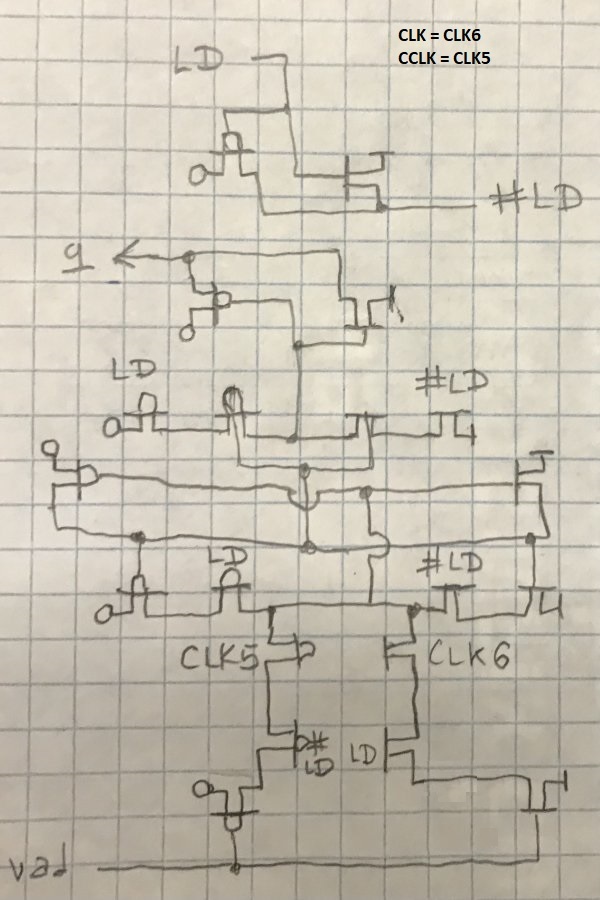 CLK = CLK6
CCLK = CLK5
LD
#LD
q
LD
#LD
LD
#LD
CLK5
CLK6
#
LD
LD
val